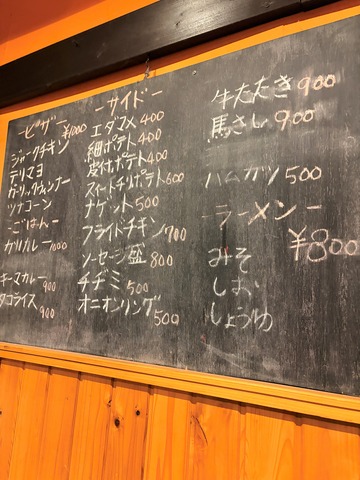 ーピザー
¥1000
ジャークチキン
テリマヨ
ガーリックウィンナー
ツナコーン
ーごはんー
カツカレー 1000
キーマカレー 900
タコライス 900
ーサイドー
エダマメ 400
細ポテト 400
皮付ポテト 400
スイートチリポテト 600
ナゲット 500
フライドチキン 700
ソーセージ盛 800
チヂミ 500
オニオンリング 500
牛たたき 900
馬さし 900
ハムカツ 500
ーラーメンー
¥800
みそ
しお
しょうゆ